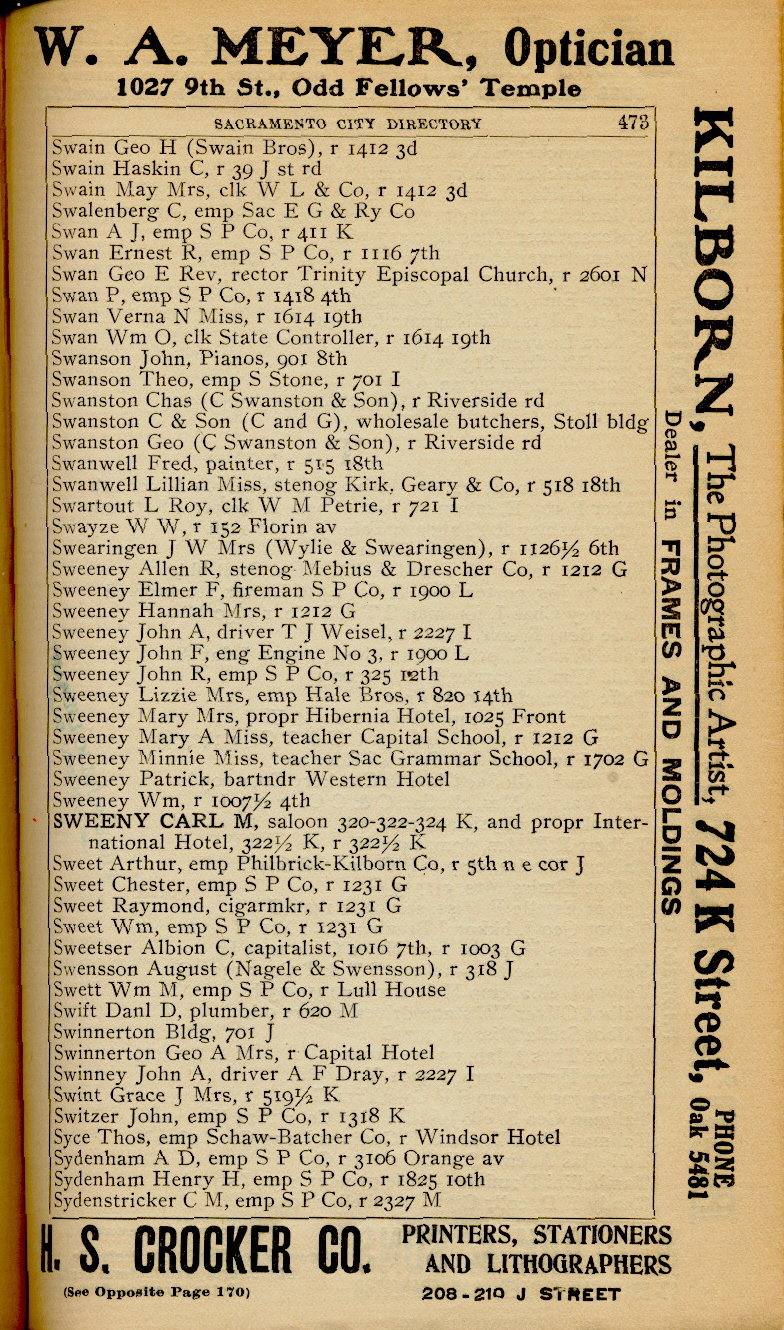 W. A. MEYER, Optician
1027 9th St., Odd Fellows' Temple
SACRAMENTO CITY DIRECTORY 473
Swain Geo H (Swain Bros), r 1412 3d
Swain Haskin C, r 39 J st rd
Swain May Mrs, clk W L & Co, r 1412 3d
Swalenberg C, emp Sac E G & Ry Co
Swan A J, emp S P Co, r 411 K
Swan Ernest R, emp S P Co, r 1116 7th
Swan Geo E Rev, rector Trinity Episcopal Church, r 2601 N
Swan P, emp S P Co, r 1418 4th
Swan Verna N Miss, r 1614 19th
Swan Wm O, clk State Controller, r 1614 19th
Swanson John, Pianos, 901 8th
Swanson Theo, emp S Stone, r 701 I
Swanston Chas (C Swanston & Son), r Riverside rd
Swanston C & Son (C and G), wholesale butchers, Stoll bldg
Swanston Geo (C Swanston & Son), r Riverside rd
Swanwell Fred, painter, r 515 18th
Swanwell Lillian Miss, stenog Kirk, Geary & Co, r 518 18th
Swartout L Roy, clk W M Petrie, r 721 I
Swayze W W, r 152 Florin av
Swearingen J W Mrs (Wylie & Swearingen), r 1126½ 6th
Sweeney Allen R, stenog Mebius & Drescher Co, r 1212 G
Sweeney Elmer F, fireman S P Co, r 1900 L
Sweeney Hannah Mrs, r 1212 G
Sweeney John A, driver T J Weisel, r 2227 I
Sweeney John F, eng Engine No 3, r 1900 L
Sweeney John R, emp S P Co, r 325 12th
Sweeney Lizzie Mrs, emp Hale Bros, r 820 14th
Sweeney Mary Mrs, propr Hibernia Hotel, 1025 Front
Sweeney Mary A Miss, teacher Capital School, r 1212 G
Sweeney Minnie Miss, teacher Sac Grammar School, r 1702 G
Sweeney Patrick, bartndr Western Hotel
Sweeney Wm, r 1007½ 4th
SWEENY CARL M, saloon 320-322-324 K, and propr Inter-
national Hotel, 322½ K, r 322½ K
Sweet Arthur, emp Philbrick-Kilborn Co, r 5th n e cor J
Sweet Chester, emp S P Co, r 1231 G
Sweet Raymond, cigarmkr, r 1231 G
Sweet Wm, emp S P Co, r 1231 G
Sweetser Albion C, capitalist, 1016 7th, r 1003 G
Swensson August (Nagele & Swensson), r 318 J
Swett Wm M, emp S P Co, r Lull House
Swift Danl D, plumber, r 620 M
Swinnerton Bldg, 701 J
Swinnerton Geo A Mrs, r Capital Hotel
Swinney John A, driver A F Dray, r 2227 I
Swint Grace J Mrs, r 519½ K
Switzer John, emp S P Co, r 1318 K
Syce Thos, emp Schaw-Batcher Co, r Windsor Hotel
Sydenham A D, emp S P Co, r 3106 Orange av
Sydenham Henry H, emp S P Co, r 1825 10th
Sydenstricker C M, emp S P Co, r 2327 M
KILBORN, The Photographic Artist, 724 K Street, PHONE Oak 5481
Dealer in FRAMES AND MOLDINGS
H. S. CROCKER CO.
(See Opposite Page 170)
PRINTERS, STATIONERS
AND LITHOGRAPHERS
208-210 J STREET